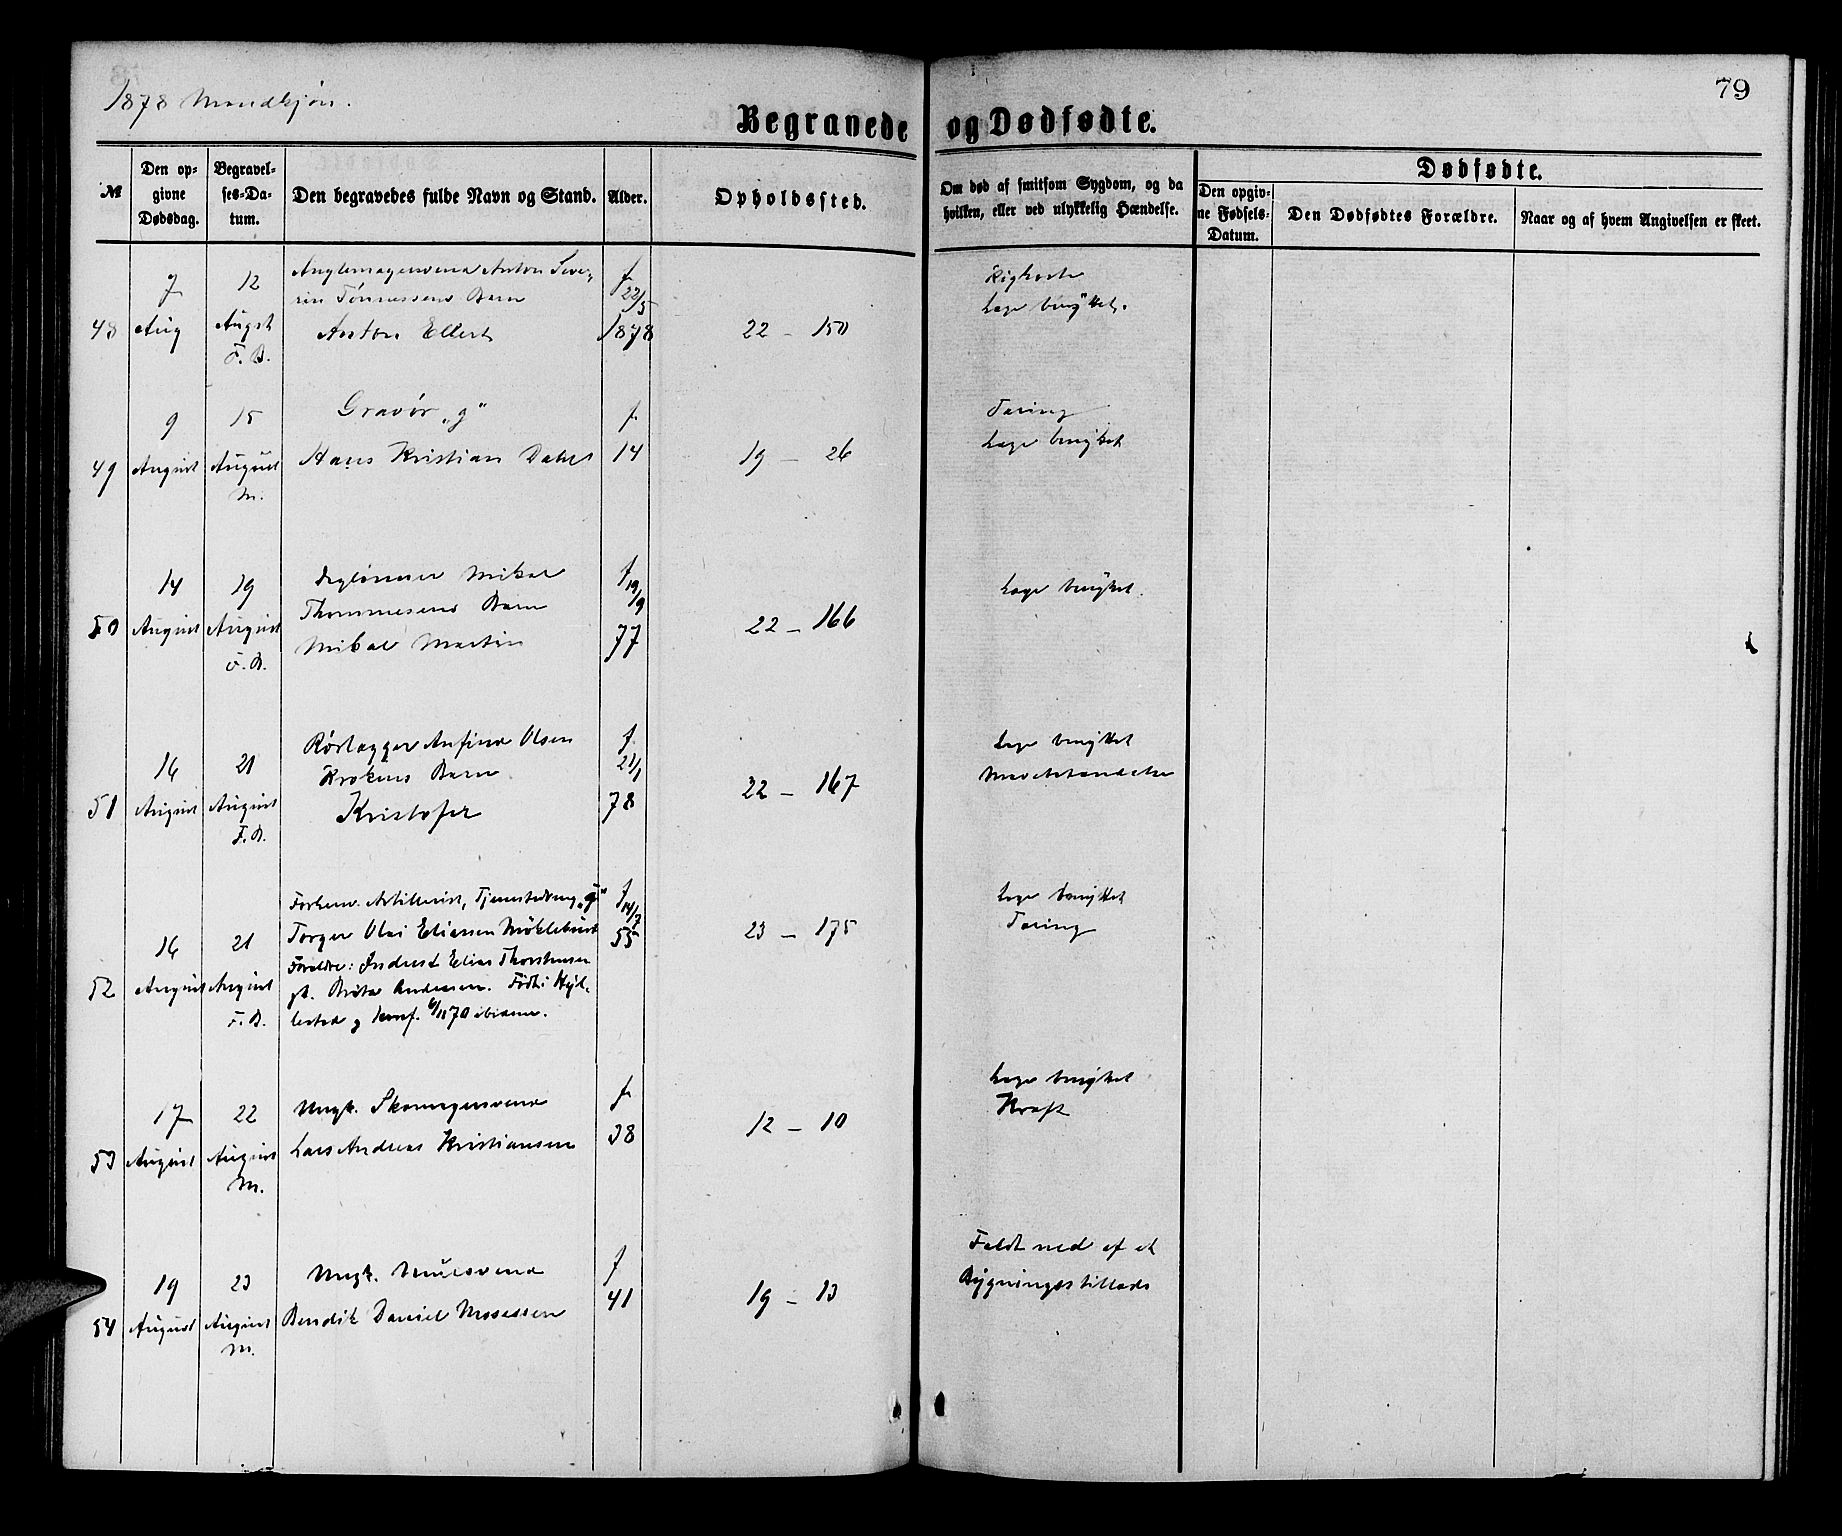 79
1878 Mandkjøn.
Begravede og Dødfødte.
№
Den opgivne Dødsdag.
Begravelses-Datum.
Den begravedes fulde Navn og Stand.
Alder.
Opholdssted.
Om død af smitsom Sygdom, og da hvilken, eller ved ulykkelig Hændelse.
Dødfødte.
Den opgivne Fødsels-Datum.
Den Dødfødtes Forældre.
Naar og af hvem Angivelsen er skeet.
48
7 Aug
12 Augst F. B.
Anton Seve-
rin Tønnessens Barn
Anton Ellert
f. 22/5 1878
22 – 150
Kighoste
Læge benyttet.
49
9 August
15 August M.
Gravør „g“
Hans Kristian Dahl
f. 14
19 – 26
Tæring
Læge benyttet
50
14 August
19 August F. B.
Daglønner Mikal
Thommesens Barn
Mikal Martin
f. 19/9 77
22 – 166
Læge benyttet.
51
16 August
21 August F. B.
Rørlægger Anfind Olsen
Krokens Barn
Kristofer
f. 21/1 78
22 – 167
Læge benyttet
52
16 August
21 August F. B.
Forhenv. Artillerist, „g“
Torger Olai Eliassen
Forældre: Elias Thorstensen
Andersen. Født i Hyl-
lestad og konf. 1870 ibidem.
f. 14/7 55
23 – 175
Læge benyttet
Tæring
53
17 August
22 August M.
Ungk. Skomagersvend
Lars Andreas Kristiansen
f. 38
12 – 10
Læge benyttet
Kræft
54
19 August
23 August M.
Ungk. Murersvend
Bendik Daniel Mosessen
f 41
19 – 13
Faldt ned af et
Bygningsstillads